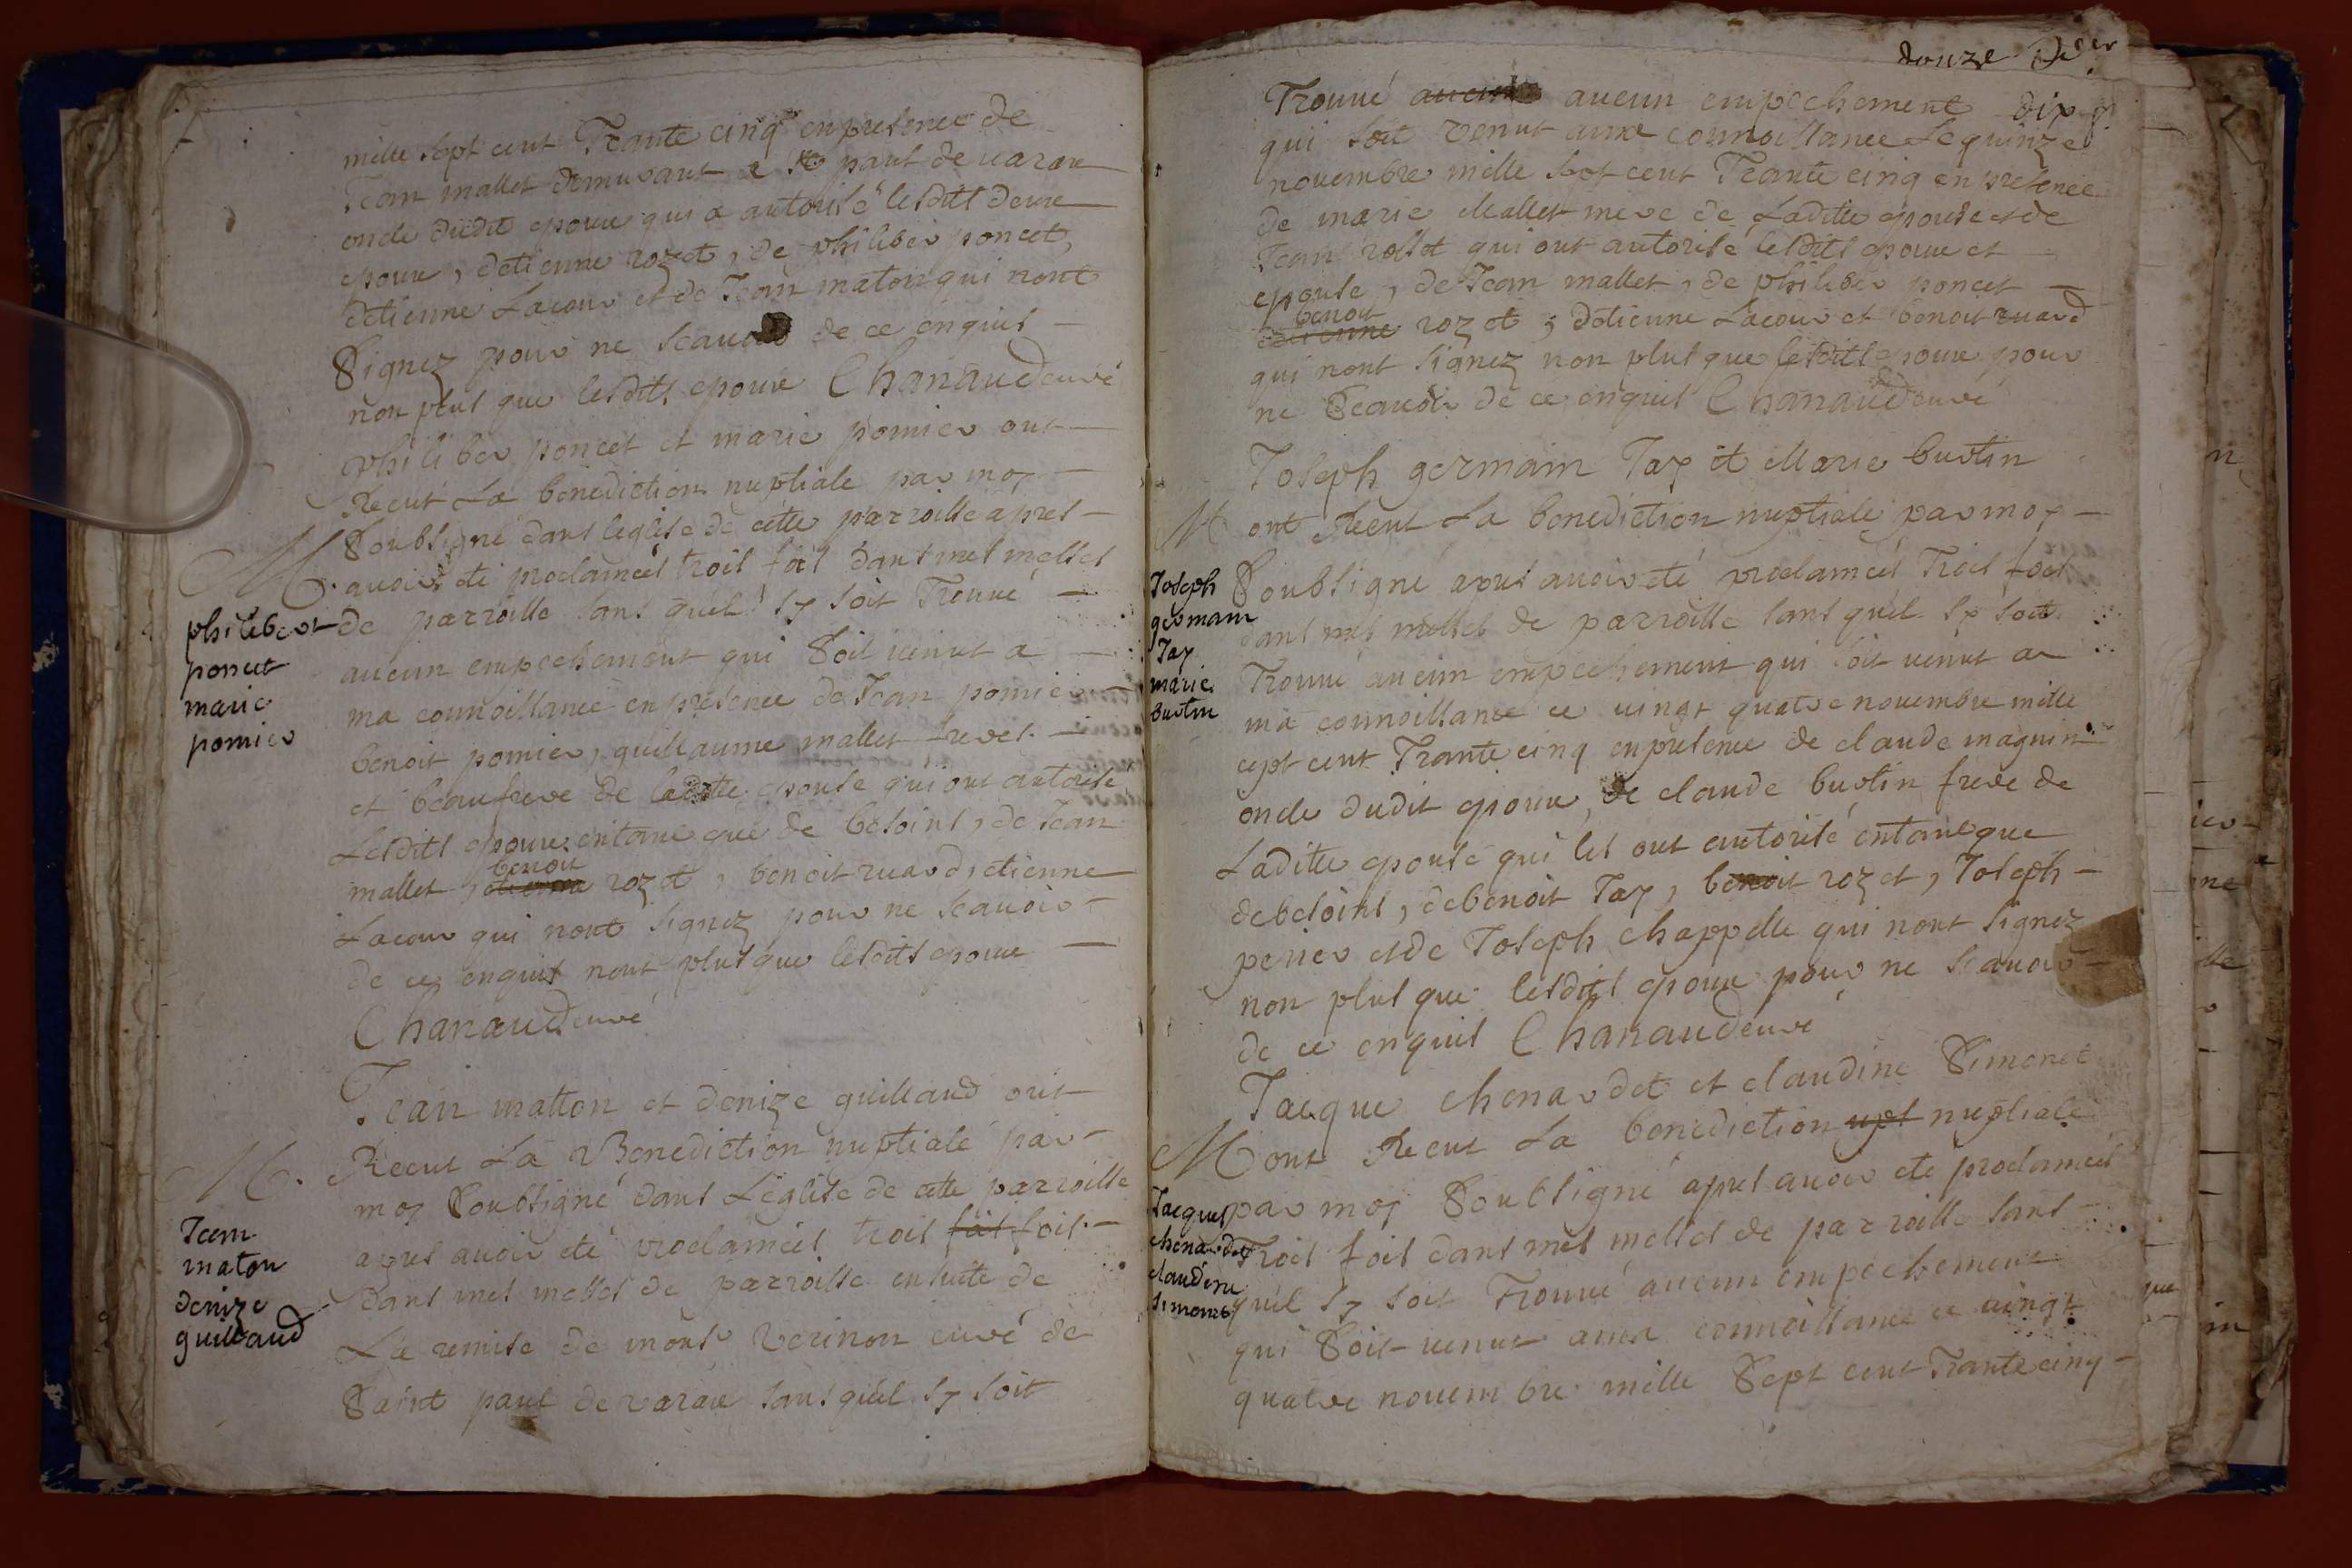 mille sept cent Trante cinq en presence de
Jean mallet demurant a st paul de varax
oncle dudit epoux qui a autorisé lesdits deux
epoux, detienne rozet, de philiber poncet,
detienne Lacour et de Jean maton qui nont
Signez pour ne scauoir de ce enquis
non plus que lesdits epoux Chanaud curé
philiber poncet et marie pomier ont
Receut La benediction nuptiale par moy
Soubsigné dans leglise de cette parroisse apres
M. auoir été proclameés trois fois dans mes messes
philibert
poncet
marie
pomier
de parroisse sans quil sy soit Trouué
aucun empechement qui Soit uenut a
ma connoissance en presence de Jean pomier
benoit pomier, guillaume mallet freres
et beaufrere de laditte epouse qui ont autorisé
Lesdits epoux entant que de besoins, de Jean
mallet, etienne benoit rozet, benoit ruard, etienne
Lacour qui nont signez pour ne scauoir
de ce enquis nont plus que lesdits epoux
Chanaud curé
Jean matton et denize guillaud ont
M. Receut La Benediction nuptiale par
moy Soubsigné dans Léglise de cette parroisse
Jean
maton
denize
guillaud
apres auoir été proclameés trois fois fois
dans mes messes de parroisse en suite de
La remise de monsr Verinon curé de
Saint paul de varax sans quil sy soit
douze
Trouué aucun aucun empechement dix
qui soit venut a ma connoissance Le quinze
nouembre mille sept cent Trante cinq en presence
de marie Mallet mere de Laditte epouse et de
Jean rosset qui ont autorisé lesdits epoux et
epouse, de Jean mallet, de philiber poncet
detienne benoit rozet, detienne Lacour et benoit ruard
qui nont signez non plus que lesdits epoux pour
ne Scauoir de ce enquis Chanaud curé
Joseph germain Jay et Marie burtin
M ont Receut La benediction nuptiale par moy
Joseph
germain
Jay
marie
burtin
Soubsigné apres auoir été proclameés Trois fois
dans mes messes de parroisse sans quil sy soit
Trouué aucun empechement qui soit uenut a
ma connoissance ce uingt quatre nouembre mille
cept cent Trante cinq en presence de claude magnin
oncle dudit epoux, de claude burtin frere de
Laditte epouse qui les ont autorisé entant que
de besoins, de benoit Jay, benoit rozet, Joseph
perier et de Joseph chappelle qui nont signez
non plus que lesdits epoux pour ne scauoir
de ce enquis Chanaud curé
Jacque chenardet et claudine Simonet
M ont Receut La benediction upt nuptiale
Jacques
chenardet
claudine
simonet
par moy Soubsigné apres auoir été proclameés
Trois fois dans mes messes de parroisse sans
quil sy soit Trouué aucun empechement
qui Soit uenut a ma connoissance ce uingt
quatre nouembre mille Sept cent Trante cinq